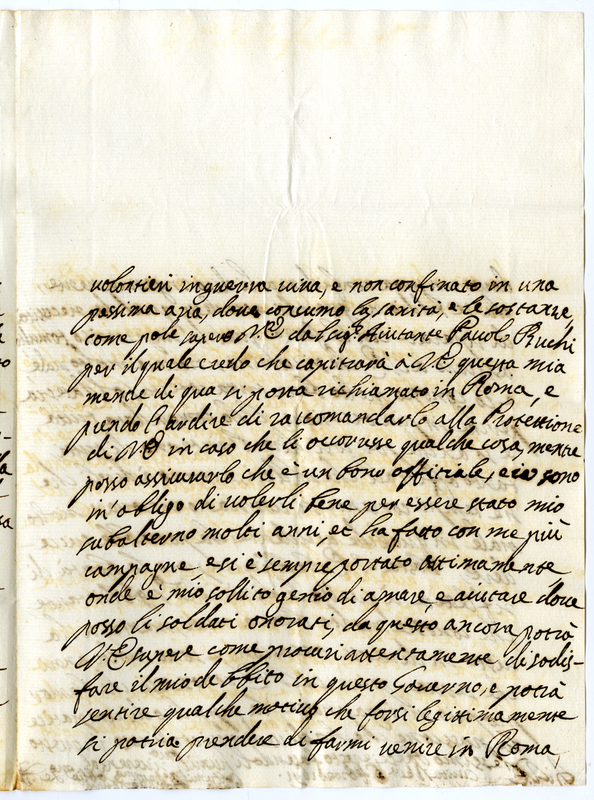 volontieri in guerra viva, e non confinato in una
pessima aria, dove consumo la sanità, e le sostanze,
come pole sapere V.E. dal Sig.r Aiutante Pavolo Ruchi
per il quale credo che capitarà à V.E. questa mia
mentre di qua si porta richiamato in Roma, e
prendo l'ardire di raccomandarlo alla Protettione
di V.E. in caso che li occorresse qualche cosa, mentre
posso assicurarlo che è un bono offitiale, e io sono
in obligo di volerli bene per essere stato mio
subalterno molti anni, et ha fatto con me più
campagne, e si è sempre portato ottimamente,
onde è mio sollito genio di amare, e aiutare dove
posso li soldati onorati, da questo ancora potrà
V.E. sapere come procuri attentamente di sodis-
fare il mio debbito in questo Governo, e potrà
sentire qualche motivo che forsi legittimamente
si potria prendere di farmi venire in Roma,